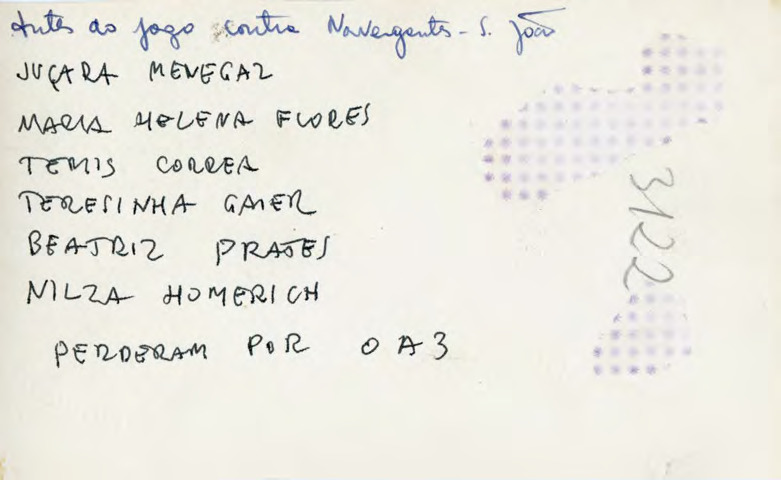 Antes do jogo contra Navegantes - S. João
JUÇARA MENEGAZ
MARIA HELENA FLORES
TEMIS CORREA
TERESINHA GAIER
BEATRIZ PRATES
NILZA HOMERICH
PERDERAM POR 0 A 3
3122